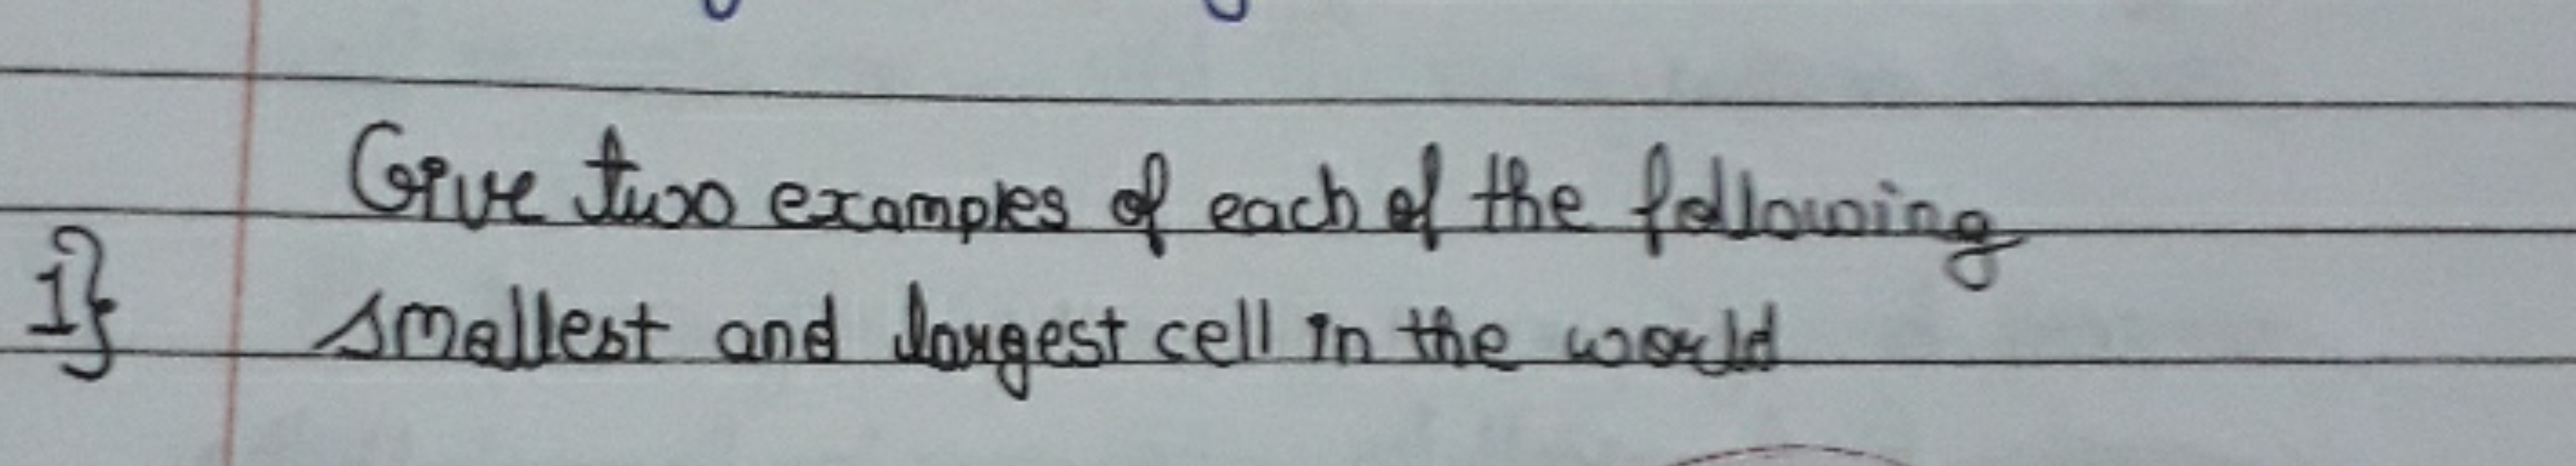 Give two examples of each of the following
1} smallest and largest cell in the world